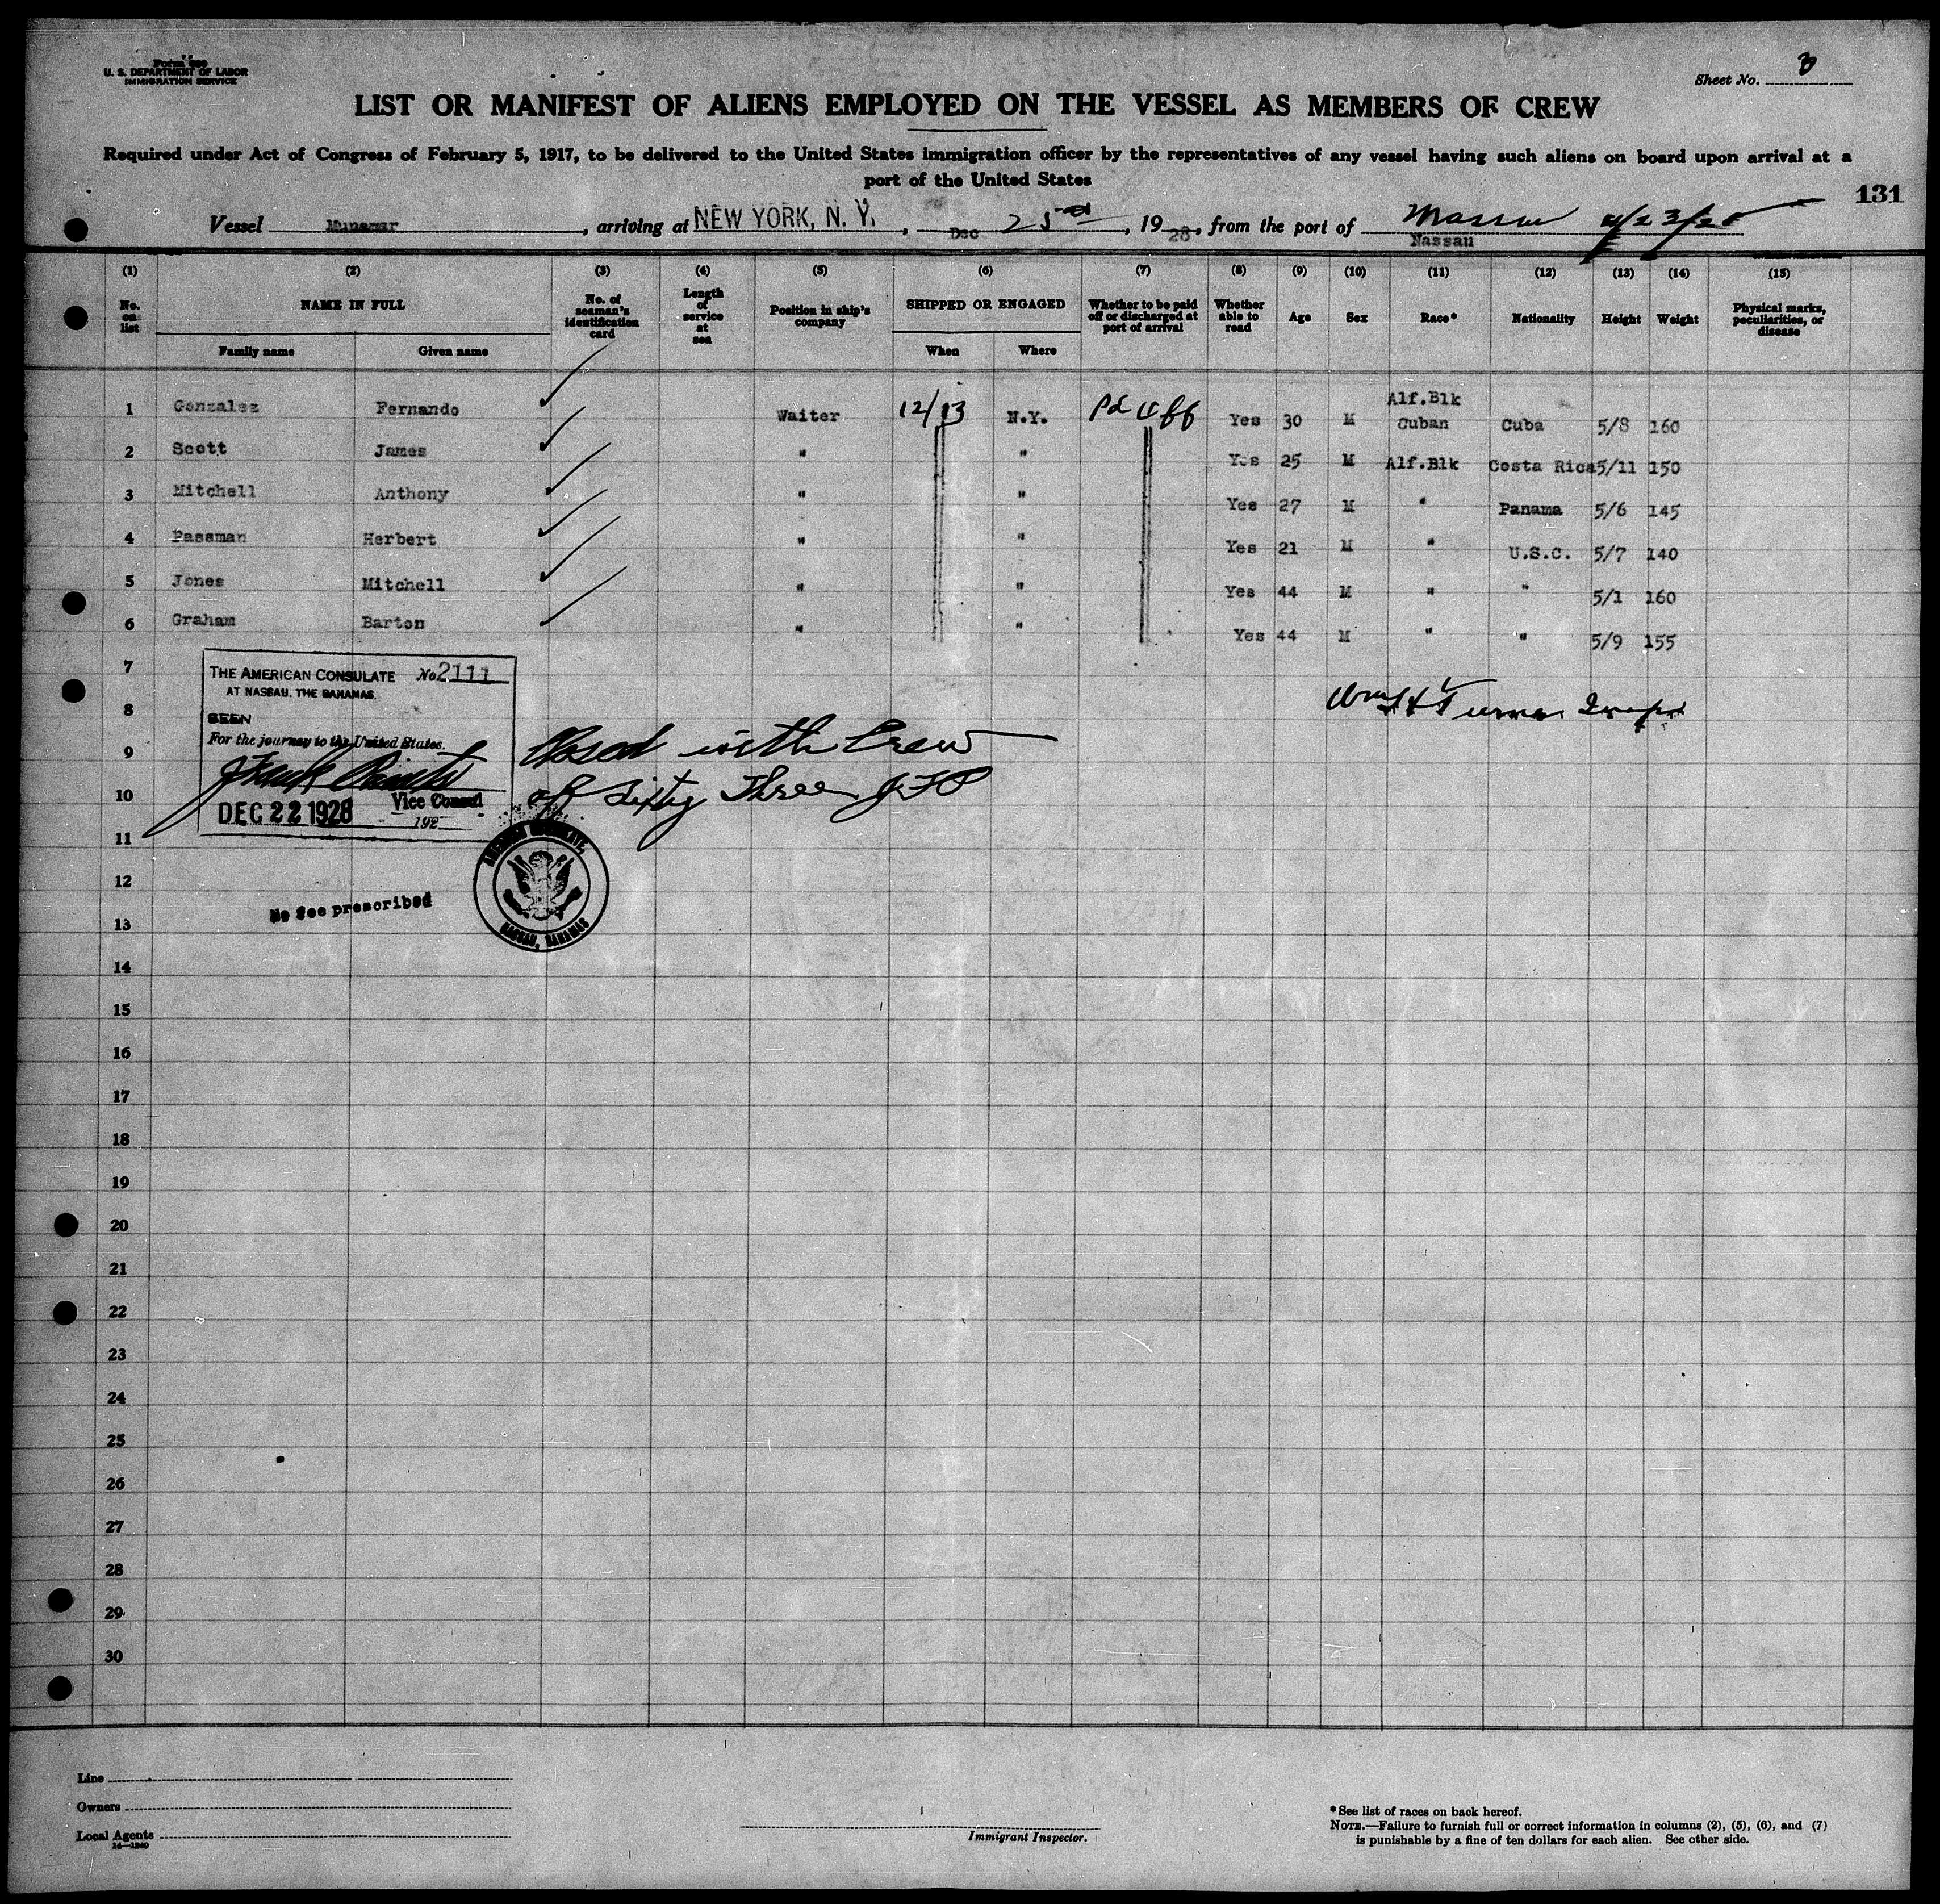 U. S. DEPARTMENT OF LABOR
IMMIGRATION SERVICE
Sheet No. 3
LIST OR MANIFEST OF ALIENS EMPLOYED ON THE VESSEL AS MEMBERS OF CREW
Required under Act of Congress of February 5, 1917, to be delivered to the United States immigration officer by the representatives of any vessel having such aliens on board upon arrival at a
port of the United States
131
Vessel Munamar, arriving at NEW YORK, N. Y., Dec 25, 1928, from the port of Nassau
Nassau
(1) (2) (3) (4) (5) (6) (7) (8) (9) (10) (11) (12) (13) (14) (15)
No. on list NAME IN FULL No. of seaman's identification card Length of service at sea Position in ship's company SHIPPED OR ENGAGED Whether to be paid off or discharged at port of arrival Whether able to read Age Sex Race* Nationality Height Weight Physical marks, peculiarities, or disease
Family name Given name When Where
1 Gonzalez Fernando Waiter 12/13 N.Y. Pd Off Yes 30 M Alf.Blk Cuban Cuba 5/8 160
2 Scott James " " Yes 25 M Alf.Blk Costa Rica 5/11 150
3 Mitchell Anthony " " Yes 27 M " Panama 5/6 145
4 Passman Herbert " " Yes 21 M " U.S.C. 5/7 140
5 Jones Mitchell " " Yes 44 M " " 5/1 160
6 Graham Barton " " Yes 44 M " " 5/9 155
7
THE AMERICAN CONSULATE No 2111
AT NASSAU, THE BAHAMAS.
8
SEEN
For the journey to the United States.
9
Closed with Crew
10
of Sixty Three JFP
Vice Consul
DEC 22 1928 192
11
AMERICAN CONSULATE,
NASSAU, BAHAMAS
12
No fee prescribed
13
14
15
16
17
18
19
20
21
22
23
24
25
26
27
28
29
30
Line
Owners
Local Agents
14—1240
Immigrant Inspector.
*See list of races on back hereof.
NOTE.—Failure to furnish full or correct information in columns (2), (5), (6), and (7)
is punishable by a fine of ten dollars for each alien. See other side.